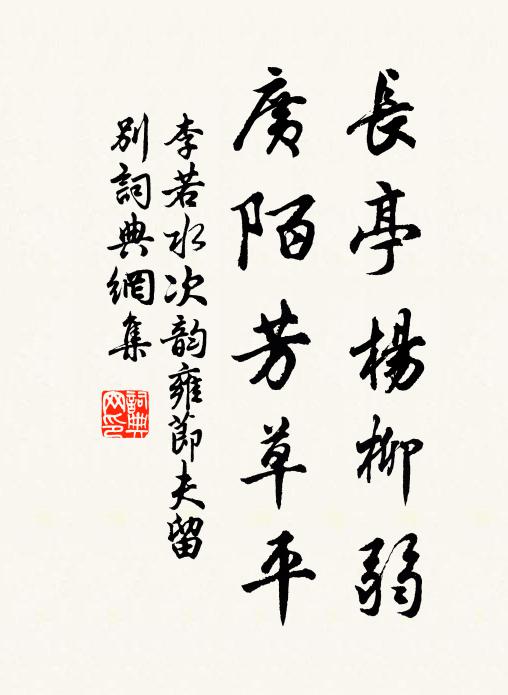 長亭楊柳弱
廣陌芳草平
李若水次韵雍節夫留
別詞典網集
詞典
网印